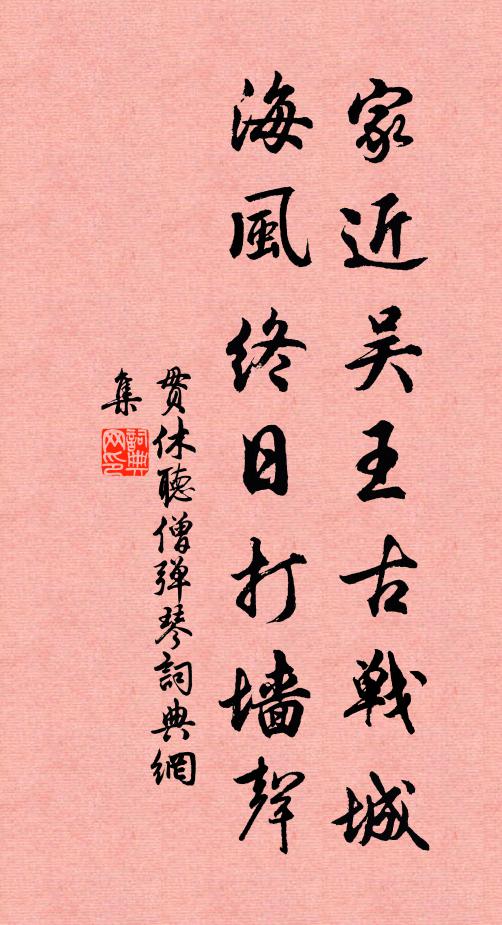 家近吴王古戦城
海風终日打墙聲
貫休聽僧弹琴詞典網
集
詞典
网印